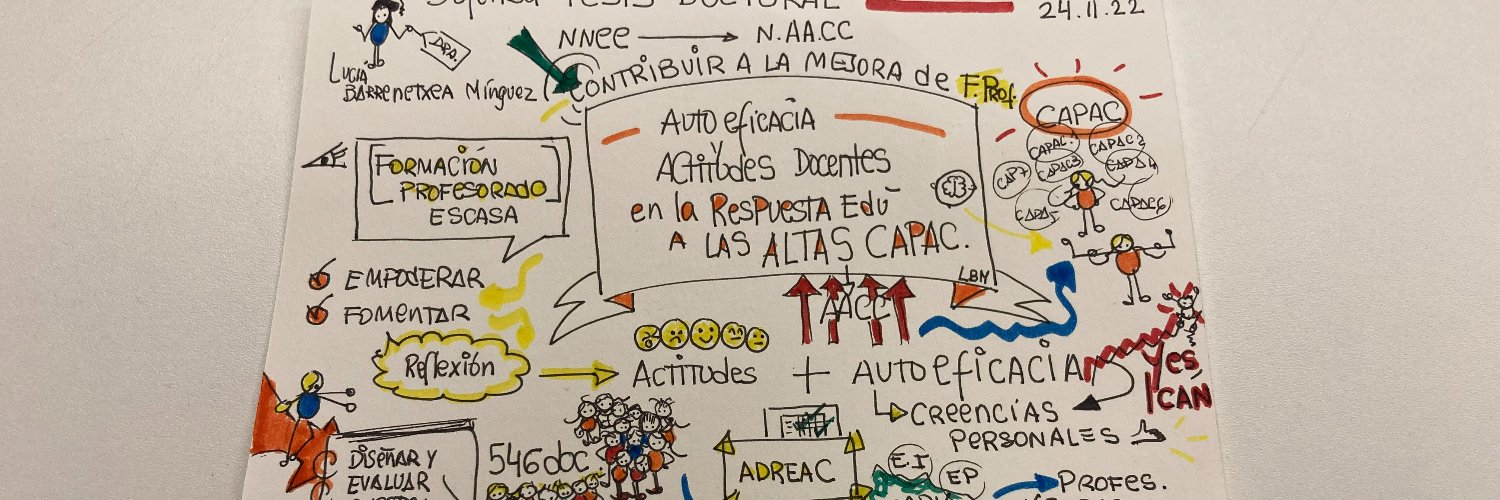 TESIS DOCTORAL
24.11.22
NNEE → N.AA.CC
LUCIA
BARRENETXEA Mínguez
CONTRIBUIR A LA MEJORA de F. PROF.
AUTOEFICACIA
Y
ACTITUDES DOCENTES
en la RESPUESTA EDU
A LAS ALTAS CAPAC.
LBM
CAPAC
CAPAC 1
CAPAC 2
CAPAC 3
CAPA 4
CAPA 5
CAPAC 6
CAP 7
FORMACIÓN
PROFESORADO
ESCASA
EMPODERAR
FOMENTAR
Reflexión
AACC
ACTITUDES + AUTOEFICACIA
Yes
I CÁN
CREENCIAS
PERSONALES
DISEÑAR Y
EVALUAR
546 doc.
ADREAC
E.I
EP
PROFES.